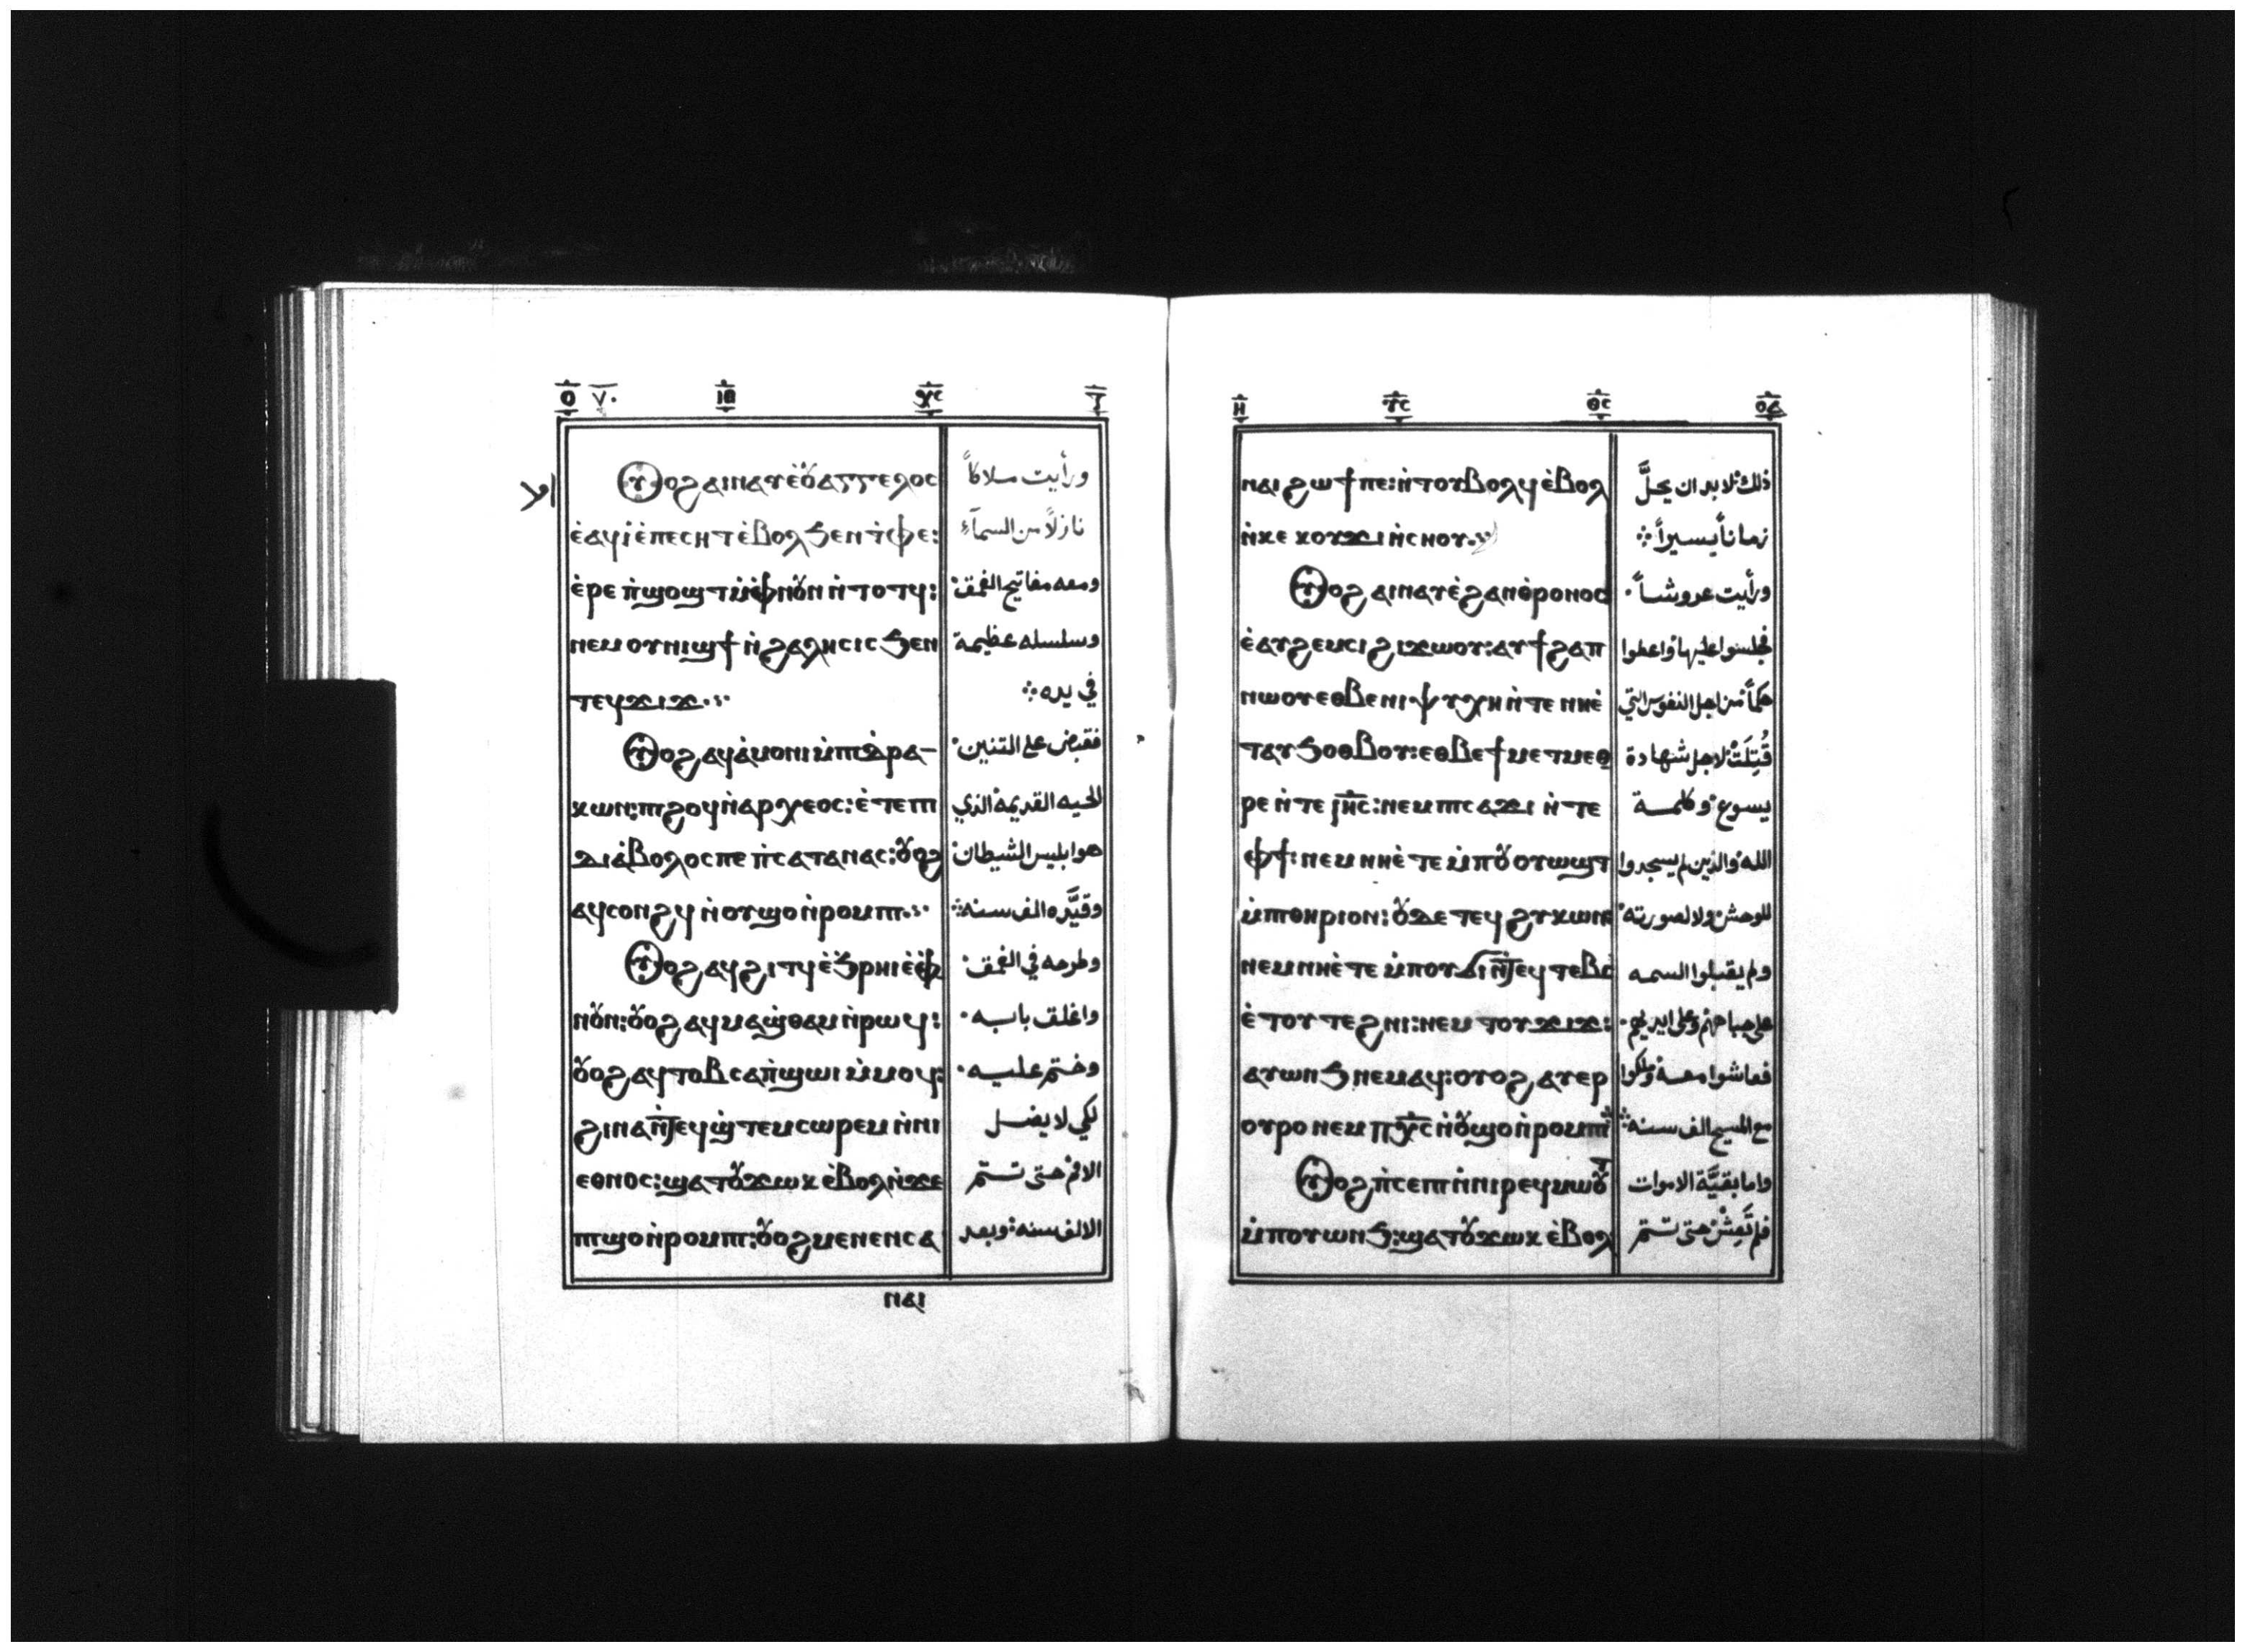 ⲟ̅ ٧٠ ⲓ̅ⲏ̅ ⲭ̅ⲥ̅
ⲟⲩⲟϩ ⲁⲓⲛⲁⲩ ⲉ̀ⲟⲩⲁⲅⲅⲉⲗⲟⲥ
ⲉ̀ⲁϥⲓ̀ ⲉ̀ⲡⲉⲥⲏⲧ ⲉ̀ⲃⲟⲗ ϧⲉⲛ ⲧ̀ⲫⲉ:
ⲉ̀ⲣⲉ ⲡ̀ϣⲟϣⲧ ⲙ̀ⲫⲛⲟⲩⲛ ⲛ̀ⲧⲟⲧϥ:
ⲛⲉⲙ ⲟⲩⲛⲓϣϯ ⲛ̀ϩⲁⲗⲏⲥⲓⲥ ϧⲉⲛ
ⲧⲉϥϫⲓϫ
ⲟⲩⲟϩ ⲁϥⲁ̀ⲙⲟⲛⲓ ⲙ̀ⲡⲓⲇⲣⲁ-
ⲕⲱⲛ: ⲡⲓϩⲟϥ ⲛ̀ⲁⲣⲭⲉⲟⲥ: ⲉ̀ⲧⲉ ⲡⲓ
ⲇⲓⲁ̀ⲃⲟⲗⲟⲥ ⲡⲉ ⲡ̀ⲥⲁⲧⲁⲛⲁⲥ: ⲟⲩⲟϩ
ⲁϥⲥⲟⲛϩϥ ⲛ̀ⲟⲩϣⲟ ⲛ̀ⲣⲟⲙⲡⲓ
ⲟⲩⲟϩ ⲁϥϩⲓⲧϥ ⲉ̀ϧⲣⲏⲓ ⲉ̀ⲫ
ⲛⲟⲩⲛ: ⲟⲩⲟϩ ⲁϥⲙⲁϣⲑⲁⲙ ⲛ̀ⲣⲱϥ:
ⲟⲩⲟϩ ⲁϥⲧⲟⲃ ⲥⲁⲡ̀ϣⲱⲓ ⲙ̀ⲙⲟϥ:
ϩⲓⲛⲁ ⲛ̀ⲧⲉϥϣ̀ⲧⲉⲙⲥⲱⲣⲉⲙ ⲛ̀ⲛⲓ
ⲉⲑⲛⲟⲥ: ϣⲁⲧⲟⲩϫⲱⲕ ⲉ̀ⲃⲟⲗ ⲛ̀ϫⲉ
ⲡⲓϣⲟ ⲛ̀ⲣⲟⲙⲡⲓ: ⲟⲩⲟϩ ⲙⲉⲛⲉⲛⲥⲁ
ورأيت ملاكاً
نازلاً من السمآء
ومعه مفاتيح الغمق
وسلسله عظيمة
في يده
فقبض على التنين
الحيه القديمة الذي
هو ابليس الشيطان
وقيَّده الف سنه
وطرحه في الغمق
واغلق بابه
وختم عليه
لكي لا يضل
الامم حتى تستتم
الالف سنه وبعد
ⲛⲁⲓ
ⲛⲁⲓ ϩⲱϯ ⲡⲉ: ⲛ̀ⲧⲟⲩⲃⲟⲗϥ ⲉ̀ⲃⲟⲗ
ⲛ̀ⲕⲉ ⲕⲟⲩϫⲓ ⲛ̀ⲥⲏⲟⲩ
ⲟⲩⲟϩ ⲁⲓⲛⲁⲩ ⲉ̀ϩⲁⲛⲑⲣⲟⲛⲟⲥ
ⲉ̀ⲁⲩϩⲉⲙⲥⲓ ϩⲓϫⲱⲟⲩ: ⲁⲩϯϩⲁⲡ
ⲛⲱⲟⲩ ⲉⲑⲃⲉ ⲛⲓⲯⲩⲭⲏ ⲛ̀ⲧⲉ ⲛⲏⲉ̀
ⲧⲁⲩϧⲟⲑⲃⲟⲩ: ⲉⲑⲃⲉ ϯⲙⲉⲧⲙⲉⲑ
ⲣⲉ ⲛ̀ⲧⲉ ⲓⲏⲥ: ⲛⲉⲙ ⲡⲓⲥⲁϫⲓ ⲛ̀ⲧⲉ
ⲫϯ: ⲛⲉⲙ ⲛⲏⲉ̀ⲧⲉ ⲙ̀ⲡⲟⲩⲟⲩⲱϣⲧ
ⲙ̀ⲡⲓⲑⲏⲣⲓⲟⲛ: ⲟⲩⲇⲉ ⲧⲉϥϩⲩⲕⲱⲛ
ⲛⲉⲙ ⲛⲏⲉ̀ⲧⲉ ⲙ̀ⲡⲟⲩϭⲓ ⲛ̀ⲧⲉϥⲧⲉⲃⲥ
ⲉ̀ⲧⲟⲩⲧⲉϩⲛⲓ: ⲛⲉⲙ ⲧⲟⲩϫⲓϫ:
ⲁⲩⲱⲛϧ ⲛⲉⲙⲁϥ: ⲟⲩⲟϩ ⲁⲩⲉⲣ
ⲟⲩⲣⲟ ⲛⲉⲙ ⲡⲭⲥ ⲛ̀ⲟⲩϣⲟ ⲛ̀ⲣⲟⲙⲡⲓ
ⲟⲩⲟϩ ⲡ̀ⲥⲉⲡⲓ ⲛ̀ⲛⲓⲣⲉϥⲙⲱⲟⲩⲧ
ⲙ̀ⲡⲟⲩⲱⲛϧ: ϣⲁⲧⲟⲩϫⲱⲕ ⲉ̀ⲃⲟⲗ
ذلك لابد ان يحلَّ
زماناً يسيراً
ورأيت عروشاً
فجلسوا عليها واعطوا
حكماً من اجل النفوس التي
قُتِلَتْ لاجل شهادة
يسوع وكلمة
الله والذين لم يسجدوا
للوحش ولا لصورته
ولم يقبلوا السمه
على جباههم وعلى ايديهم
فعاشوا معه وملكوا
مع المسيح الف سنه
واما بقيَّة الاموات
فلم تَعِشْ حتى تستتم